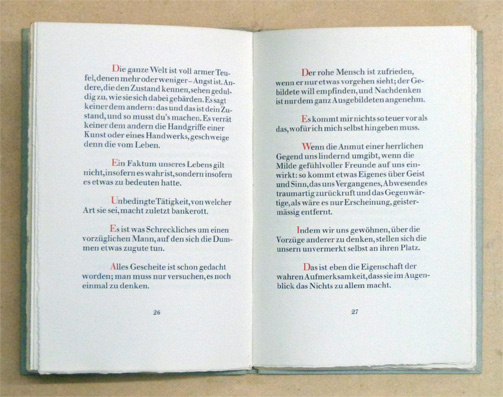 Die ganze Welt ist voll armer Teu-
fel, denen mehr oder weniger – Angst ist. An-
dere, die den Zustand kennen, sehen gedul-
dig zu, wie sie sich dabei gebärden. Es sagt
keiner dem andern: das und das ist dein Zu-
stand, und so musst du's machen. Es verrät
keiner dem andern die Handgriffe einer
Kunst oder eines Handwerks, geschweige
denn die vom Leben.
Ein Faktum unseres Lebens gilt
nicht, insofern es wahr ist, sondern insofern
es etwas zu bedeuten hatte.
Unbedingte Tätigkeit, von welcher
Art sie sei, macht zuletzt bankerott.
Es ist was Schreckliches um einen
vorzüglichen Mann, auf den sich die Dum-
men etwas zugute tun.
Alles Gescheite ist schon gedacht
worden; man muss nur versuchen, es noch
einmal zu denken.
26
Der rohe Mensch ist zufrieden,
wenn er nur etwas vorgehen sieht; der Ge-
bildete will empfinden, und Nachdenken
ist nur dem ganz Ausgebildeten angenehm.
Es kommt mir nichts so teuer vor als
das, wofür ich mich selbst hingeben muss.
Wenn die Anmut einer herrlichen
Gegend uns lindernd umgibt, wenn die
Milde gefühlvoller Freunde auf uns ein-
wirkt: so kommt etwas Eigenes über Geist
und Sinn, das uns Vergangenes, Abwesendes
traumartig zurückruft und das Gegenwär-
tige, als wäre es nur Erscheinung, geister-
mässig entfernt.
Indem wir uns gewöhnen, über die
Vorzüge anderer zu denken, stellen sich die
unsern unvermerkt selbst an ihren Platz.
Das ist eben die Eigenschaft der
wahren Aufmerksamkeit, dass sie im Augen-
blick das Nichts zu allem macht.
27